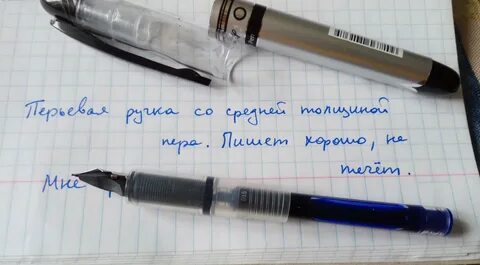 Перьевая ручка со средней толщиной
пера. Пишет хорошо, не
течёт.
Мне